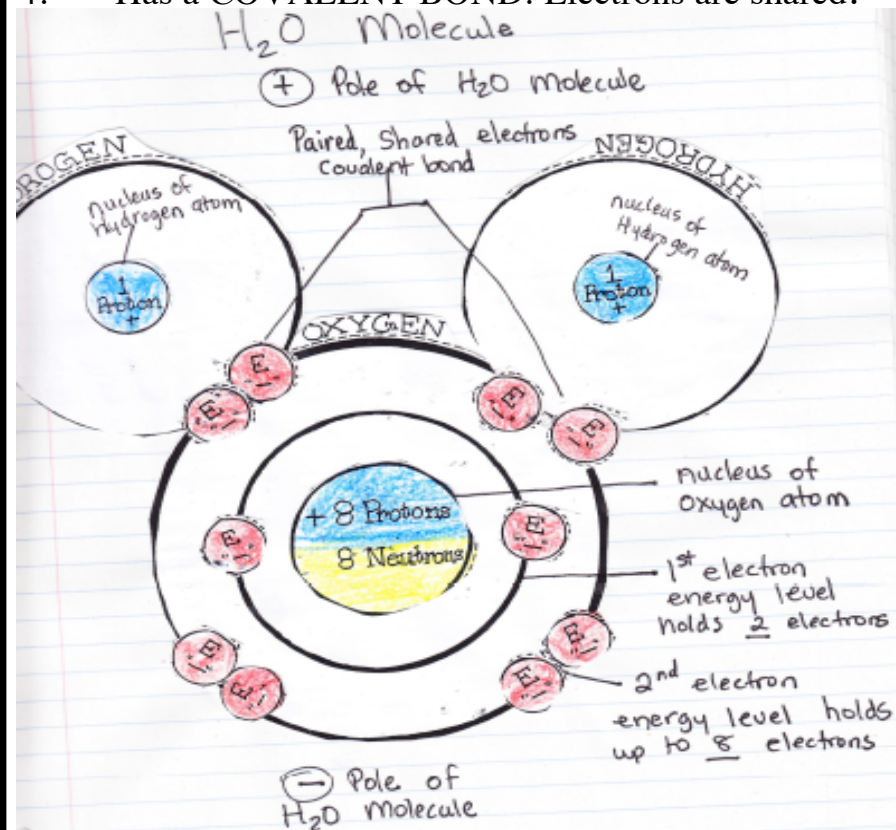 Has a COVALENT BOND. Electrons are shared.
H2O Molecule
+ Pole of H2O molecule
Paired, Shared electrons
Covalent bond
ROGEN
HYDROGEN
nucleus of
Hydrogen atom
nucleus of
Hydrogen atom
1
Proton
+
1
Proton
+
OXYGEN
E -
E -
E -
E -
nucleus of
oxygen atom
+ 8 Protons
8 Neutrons
E -
E -
1st electron
energy level
holds 2 electrons
E -
E -
E -
E -
2nd electron
energy level holds
up to 8 electrons
- Pole of
H2O molecule